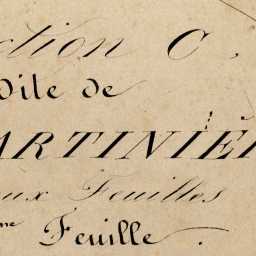 ction C.
Dite de
ARTINIÈR
eux Feuilles
me Feuille.